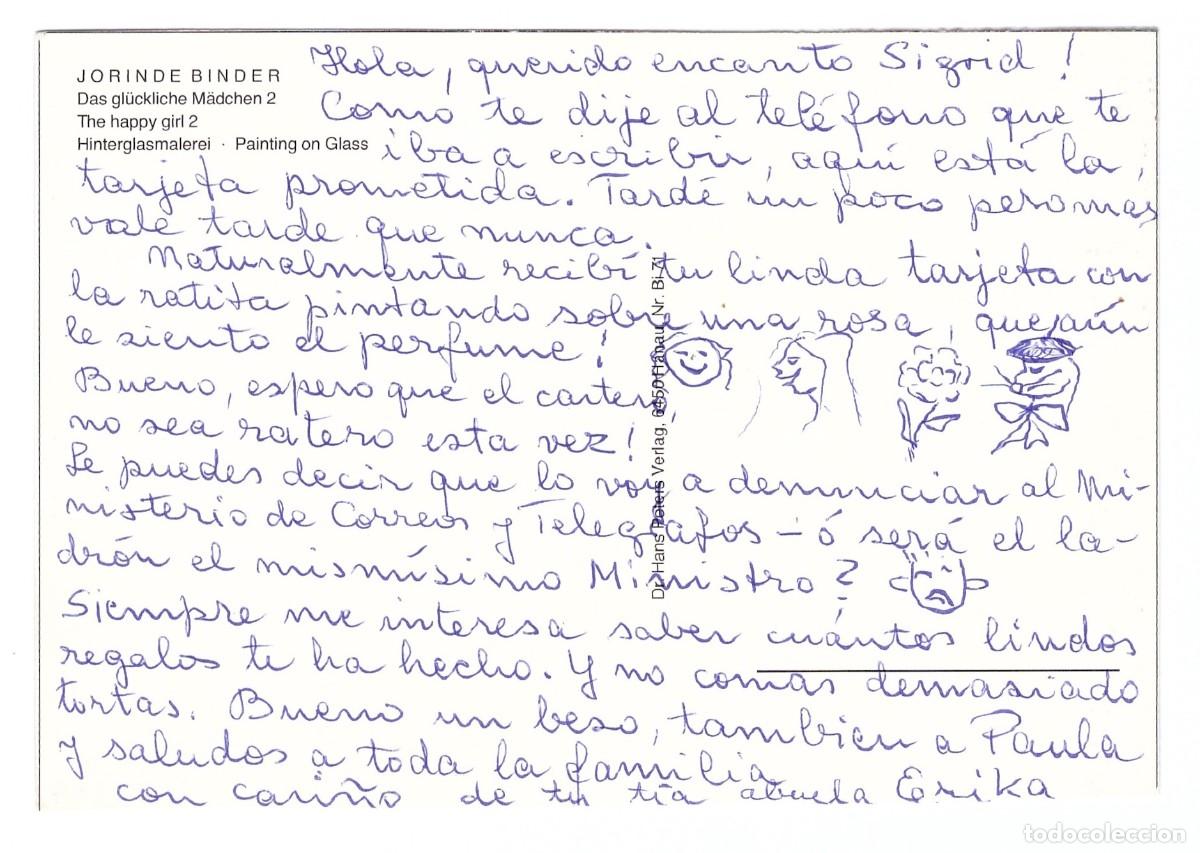 JORINDE BINDER
Das glückliche Mädchen 2
The happy girl 2
Hinterglasmalerei · Painting on Glass
Hola, querido encanto Sigrid!
Como te dije al teléfono que te
iba a escribir, aquí está la
tarjeta prometida. Tardé un poco pero más
vale tarde que nunca.
Naturalmente recibí tu linda tarjeta con
la ratita pintando sobre una rosa, que aún
le siento el perfume!
Bueno, espero que el cartero
no sea ratero esta vez!
Le puedes decir que lo voy a denunciar al Mi-
nisterio de Correos y Telegrafos - ó será el la-
drón el mismísimo Ministro?
Siempre me interesa saber cuántos lindos
regalos te ha hecho. Y no comas demasiado
tortas. Bueno un beso, tambien a Paula
y saludos a toda la familia
con cariño de tu tía abuela Erika
Dr. Hans Peters Verlag, 6450 Hanau, Nr. Bi 71
todocoleccion